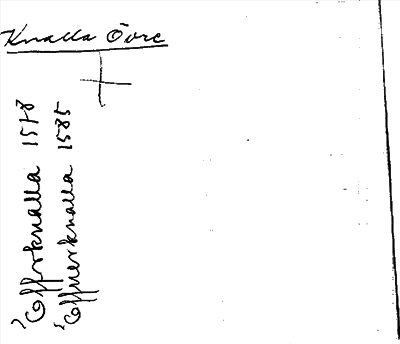 Knalla Övre
Offrknalla 1578
Offuerknalla 1585